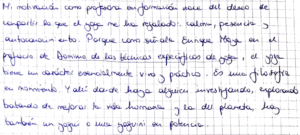 Mi motivación como profesora en formación nace del deseo de
compartir lo que el yoga me ha regalado: calma, presencia y
autoconocimiento. Porque como señala Enrique Moya en el
prefacio de Dominio de las técnicas específicas de yoga, el yoga
tiene un carácter esencialmente vivo y práctico. Es una filosofía
en movimiento. Y allí donde haya alguien investigando, explorando
tratando de mejorar la vida humana y la del planeta, hay
también un yogui o una yoguini en potencia.